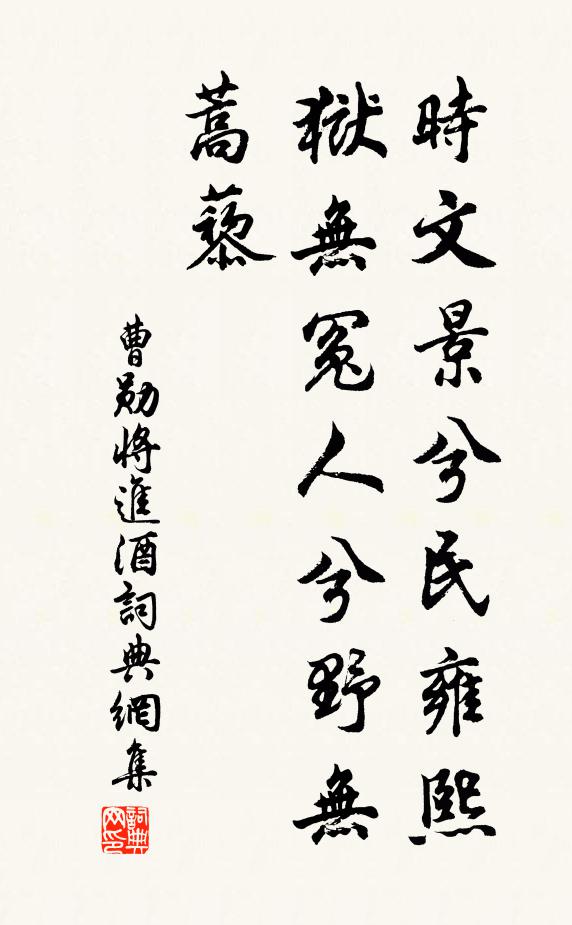 時文景兮民雍熙
獄無冤人兮野無
蒿藜
曹勛將進酒詞典網集
詞典網印